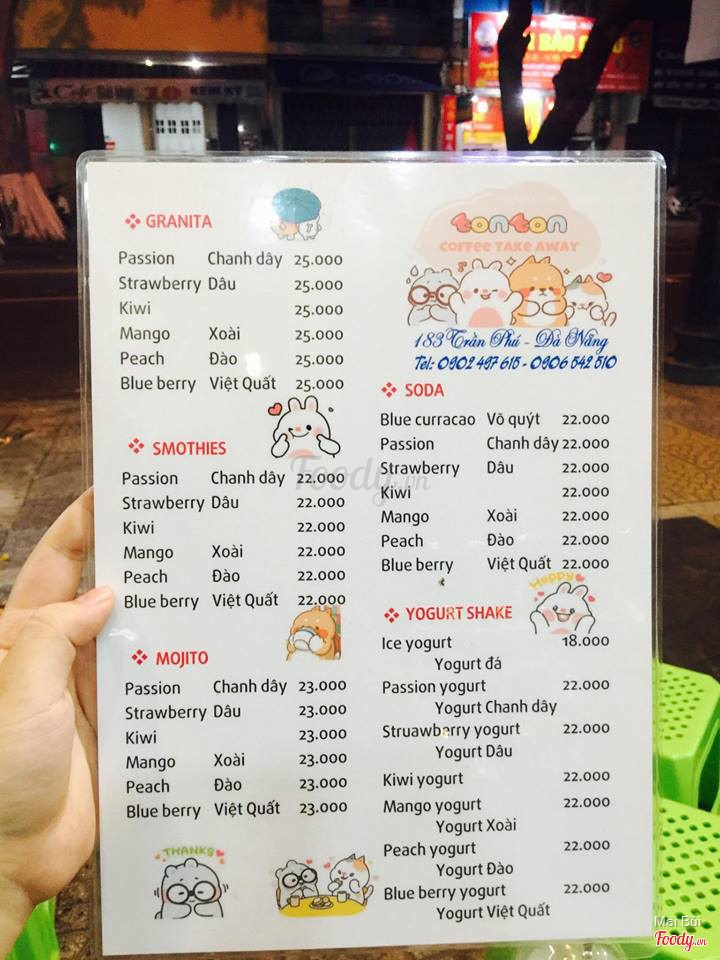 GRANITA
Passion Chanh dây 25.000
Strawberry Dâu 25.000
Kiwi 25.000
Mango Xoài 25.000
Peach Đào 25.000
Blue berry Việt Quất 25.000
SMOTHIES
Passion Chanh dây 22.000
Strawberry Dâu 22.000
Kiwi 22.000
Mango Xoài 22.000
Peach Đào 22.000
Blue berry Việt Quất 22.000
MOJITO
Passion Chanh dây 23.000
Strawberry Dâu 23.000
Kiwi 23.000
Mango Xoài 23.000
Peach Đào 23.000
Blue berry Việt Quất 23.000
THANKS
tonton
COFFEE TAKE AWAY
183 Trần Phú - Đà Nẵng
Tel: 0902 497 615 - 0906 542 510
SODA
Blue curracao Võ quýt 22.000
Passion Chanh dây 22.000
Strawberry Dâu 22.000
Kiwi 22.000
Mango Xoài 22.000
Peach Đào 22.000
Blue berry Việt Quất 22.000
Happy
YOGURT SHAKE
Ice yogurt 18.000
Yogurt đá
Passion yogurt 22.000
Yogurt Chanh dây
Struawberry yogurt 22.000
Yogurt Dâu
Kiwi yogurt 22.000
Mango yogurt 22.000
Yogurt Xoài
Peach yogurt 22.000
Yogurt Đào
Blue berry yogurt 22.000
Yogurt Việt Quất
Foody.vn
Mai Bùi
Foody.vn